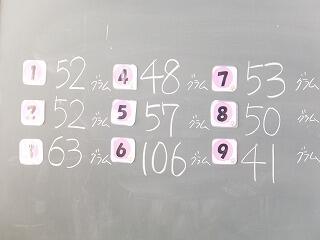 1 52 グラム 4 48 グラム 7 53 グラム
2 52 グラム 5 57 グラム 8 50 グラム
3 63 グラム 6 106 グラム 9 41 グラム